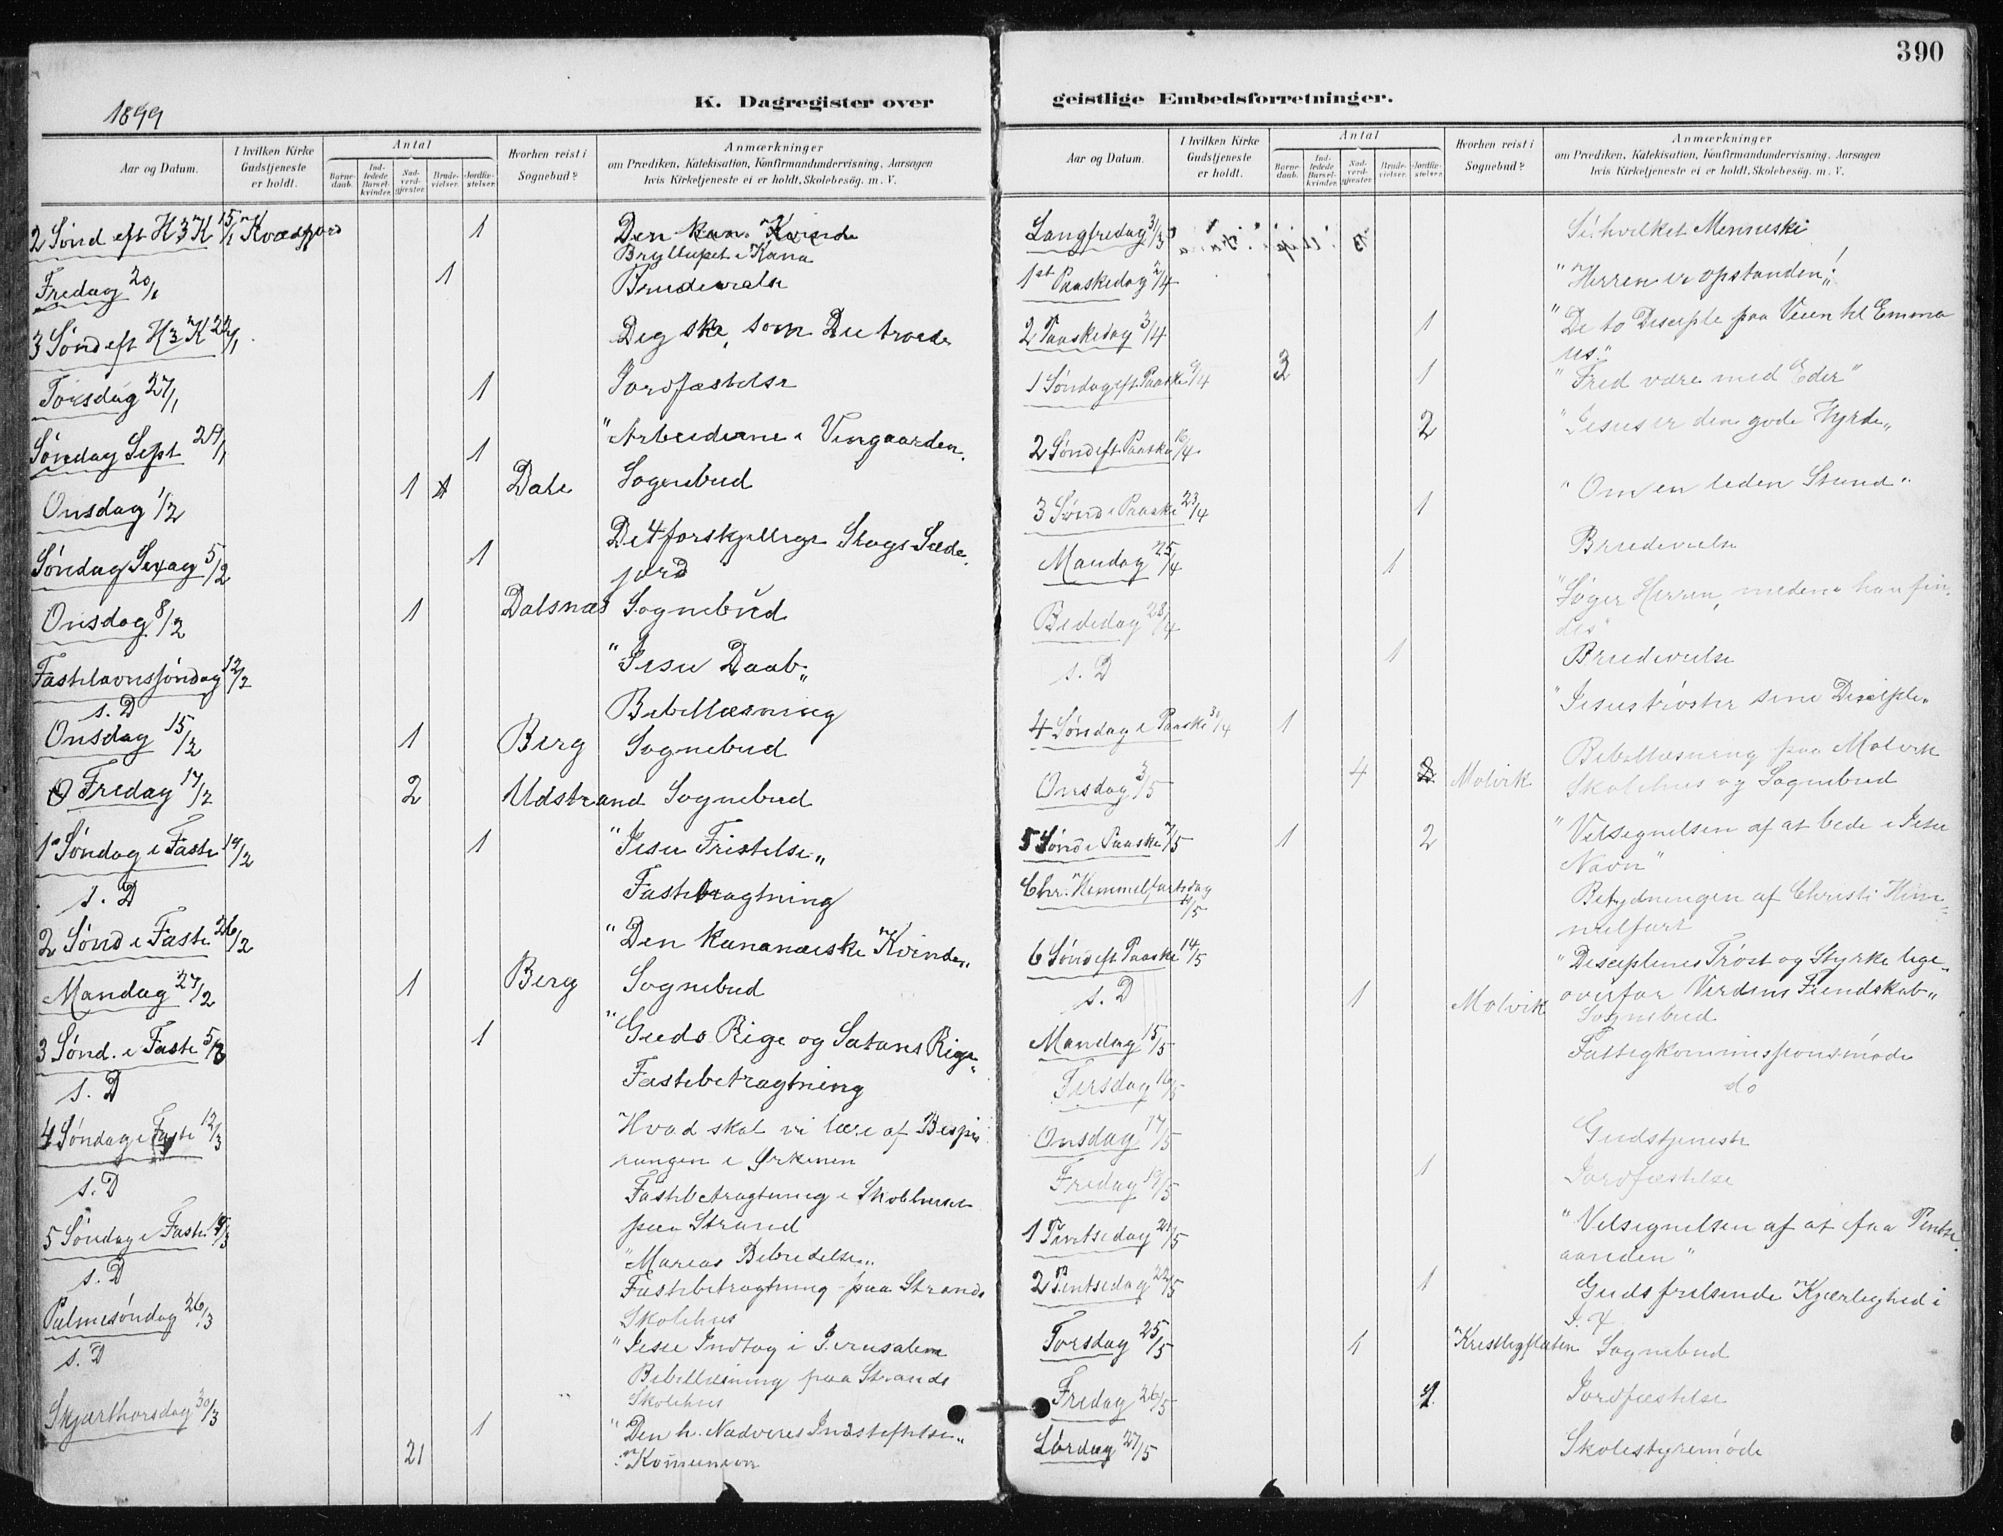 390
1899
K. Dagregister over geistlige Embedsforretninger.
Aar og Datum. I hvilken Kirke Gudstjeneste er holdt. Antal Barne-daab. Ind-ledede Barsel-kvinder. Nad-verd-gjester. Brude-vielser. Jordfæ-stelser. Hvorhen reist i Sognebud? Anmærkninger om Prædiken, Katekisation, Konfirmandundervisning, Aarsagen hvis Kirketjeneste ei er holdt, Skolebesøg, m. V.
2 Sønd eft H3K 15/1 Kvædfjord 1 Den kan. Kvinde
Bryllupet i Kana
Fredag 20/1 1 Brudevielse
3 Sønd eft H3K 22/1 Dig ske, som Du troede
Torsdag 27/1 1 Jordfæstelse
Søndag Sept 29/1 1 "Arbeiderne i Vingaarden.
Onsdag 1/2 1 1 Dale Sognebud
Søndag Sexag 5/2 1 De 4 forskjellige Slags Sæde
jord
Onsdag 8/2 1 Dalsnæs Sognebud
Fastelavnssøndag 12/2 "Jesu Daab"
s. D Bibellæsning
Onsdag 15/2 1 Berg Sognebud
Fredag 17/2 2 Udstrand Sognebud
1 Søndag i Faste 19/2 1 "Jesu Fristelse"
s. D Fastebetragtning
2 Sønd i Faste 26/2 "Den kananæiske Kvinde"
Mandag 27/2 1 Berg Sognebud
3 Sønd. i Faste 5/3 1 "Guds Rige og Satans Rige"
s. D Fastebetragtning
4 Søndag i Faste 12/3 Hvad skal vi lære af Bespis
ningen i Ørkenen
s. D Fastebetragtning i Skolehuset
paa Strand
5 Søndag i Faste 19/3 "Marias Bebudelse"
s. D Fastebetragtning paa Strands
Skolehus
Palmesøndag 26/3 "Jesu Indtog i Jerusalem
s. D Bibellæsning paa Strands
Skolehus
Skjærthorsdag 30/3 1 "Den h. Nadveres Indstiftelse"
21 Komunion
Aar og Datum. I hvilken Kirke Gudstjeneste er holdt. Antal Barne-daab. Ind-ledede Barsel-kvinder. Nad-verd-gjester. Brude-vielser. Jordfæ-stelser. Hvorhen reist i Sognebud? Anmærkninger om Prædiken, Katekisation, Konfirmandundervisning, Aarsagen hvis Kirketjeneste ei er holdt, Skolebesøg, m. V.
Langfredag 31/3 Se hvilket Menneske
1st Paaskedag 2/4 "Herren er opstanden!"
2 Paaskedag 3/4 1 "De to Disciple paa Veien til Emma
us."
1 Søndag eft. Paaske 9/4 3 1 "Fred være med Eder"
2 Sønd eft Paaske 16/4 2 "Jesus er den gode Hyrde"
3 Sønd e Paaske 23/4 1 "Om en liden Stund"
Mandag 25/4 1 Brudevielse
Bededag 28/4 "Søger Herren, medens han fin
des"
s. D 1 Brudevielse
4 Søndag e Paaske 30/4 1 "Jesus trøster sine Disciple"
Onsdag 3/5 4 2 Molvik Bibellæsning paa Molvik
Skolehus og Sognebud
5 Sønd e Paaske 7/5 1 2 "Velsignelsen af at bede i Jesu
Navn"
Chr. Himmelfartsdag 11/5 Betydningen af Christi Him
melfart
6 Sønd eft Paaske 14/5 "Disciplenes Trøst og Styrke lige
overfor Verdens Fiendskab"
s. D 1 Molvik Sognebud
Mandag 15/5 Fattigkommissionsmøde
Tirsdag 16/5 do
Onsdag 17/5 Gudstjeneste
Fredag 19/5 1 Jordfæstelse
1 Pintsedag 21/5 "Velsignelsen af at faa Pintse
aanden"
2 Pintsedag 22/5 1 Guds frelsende Kjærlighed i
J. X.
Torsdag 25/5 1 Sognebud
Fredag 26/5 1 Jordfæstelse
Lørdag 27/5 Skolestyremøde